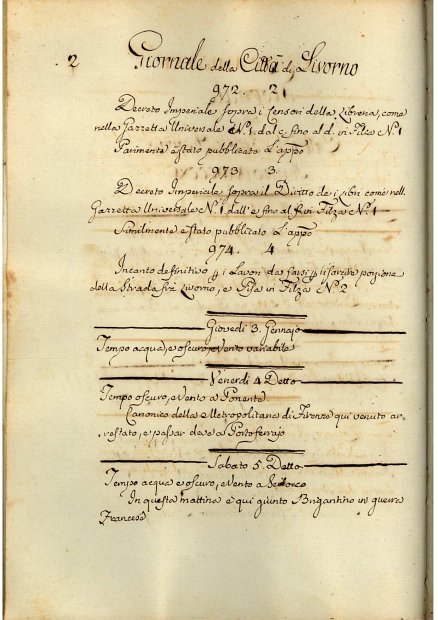 2 Giornale della Città di Livorno
972. 2
Decreto Imperiale sopra i Censori della Libreria, come
nella Gazzetta Universale N.º 1. dal c fino al d. in Filza N.º 1
Parimente è stato pubblicato L'appo
973 3
Decreto Imperiale sopra il Diritto de i libri come nell.
Gazzetta Universale N.º 1. dall'e fino al f in Filza N.º 1
Similmente è stato pubblicato L'appo
974. 4
Incanto definitivo p i Lavori da farsi p risarcire porzione
della Strada fra Livorno, e Pisa in Filza N.º 2
Giovedi 3. Gennajo
Tempo acqua, e oscuro, e Vento variabile
Venerdi 4 Detto
Tempo oscuro, e Vento a Ponente
Canonico della Metropolitana di Firenze qui venuto ar,
restato, e passar deve a Portoferrajo
Sabato 5. Detto
Tempo acqua e oscuro, e Vento a Scilocco
In questa mattina e qui giunto Brigantino in guerra
Francese